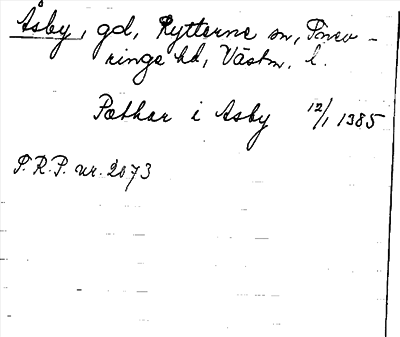 Åsby, gd, Rytterne sn, Snev-
ringe hd, Västm. l.
Pæthar i Asby 12/1 1385
P.R.P. nr. 2073